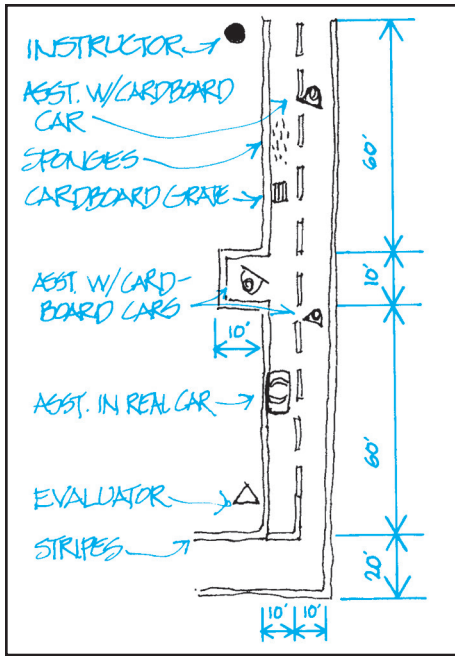 INSTRUCTOR
ASST. W/CARDBOARD
CAR
SPONGES
CARDBOARD GRATE
ASST. W/CARD-
BOARD CARS
10'
ASST. IN REAL CAR
EVALUATOR
STRIPES
60'
10'
60'
20'
10' 10'